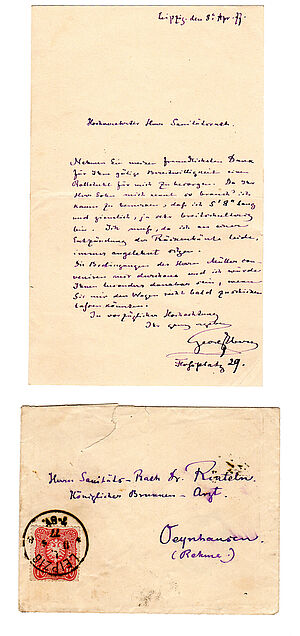 Leipzig, den 8. Apr. 77.
Hochverehrter Herr Sanitätsrath.
Nehmen Sie meinen freundlichsten Dank
für Ihre gütige Bereitwilligkeit einen
Rollstuhl für mich zu besorgen. Da Ihr
Herr Sohn mich kennt so brauch' ich
kaum zu bemerken, daß ich 5' 8" lang
und ziemlich, ja sehr breitschultrig
bin. Ich muß, da ich an einer
Entzündung der Rückenhäute leide,
immer angelehnt sitzen.
Die Bedingungen des Herrn Müller con-
veniren mir durchaus und ich würde
Ihnen besonders dankbar sein, wenn
Sie mir den Wagen recht bald zuschicken
lassen könnten.
In vorzüglicher Hochachtung
Ihr ganz ergebener
Georg Ebers
29.
Herrn Sanitäts-Rath Dr.
Königlicher Brunnen-Arzt.
Oeynhausen
(Rehme).
LEIPZIG
77